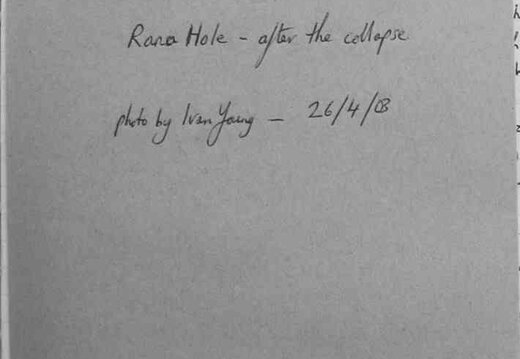 Rana Hole - after the collapse
photo by Ivan Young - 26/4/03